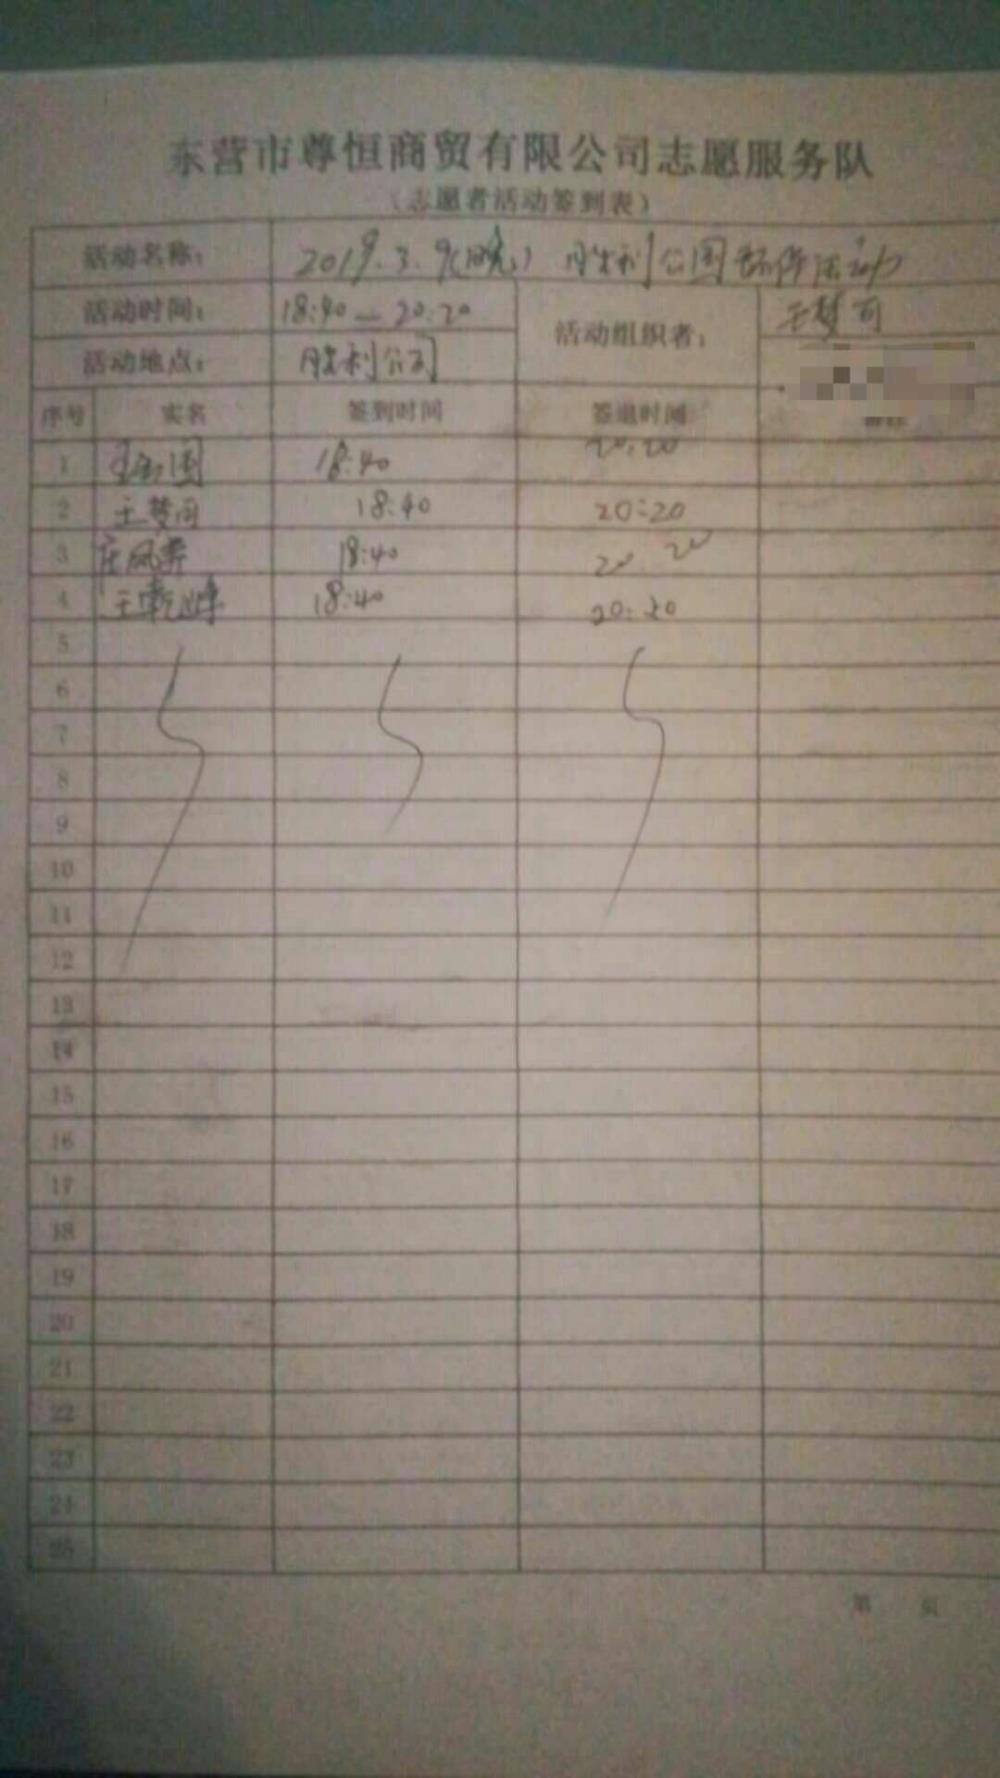 东营市尊恒商贸有限公司志愿服务队
（志愿者活动签到表）
活动名称： 2019.3.9(晚) 胜利公园 活动
活动时间： 18:40—20:20 活动组织者： 王梦雨
活动地点： 胜利公园
序号 实名 签到时间 签退时间 备注
1 18:40 20:20
2 王梦雨 18:40 20:20
3 庄凤 18:40 20 20
4 王乾峰 18:40 20:20
5
6
7
8
9
10
11
12
13
14
15
16
17
18
19
20
21
22
23
24
25
第 页